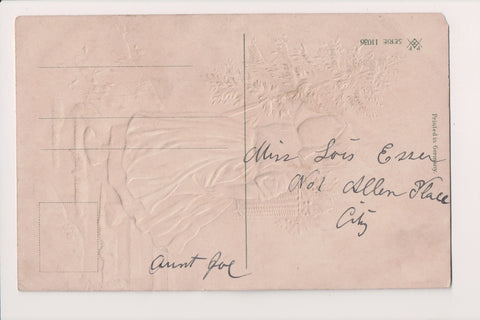 SERIE 11036
Printed in Germany
Miss Lois Esser
No 1 Allen Place
City
Aunt Joe